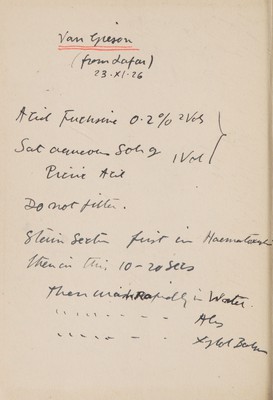 Van Gieson
(from Lafar)
23.XI.26
Acid Fuchsine 0.2% 2 Vols
Sat aqueous Soln of 1 Vol
Picric Acid
Do not filter.
Stain Section first in
then in this 10-20 secs
Then wash rapidly in Water.
" " - - - Alc
" " - - - Xylol Balsam